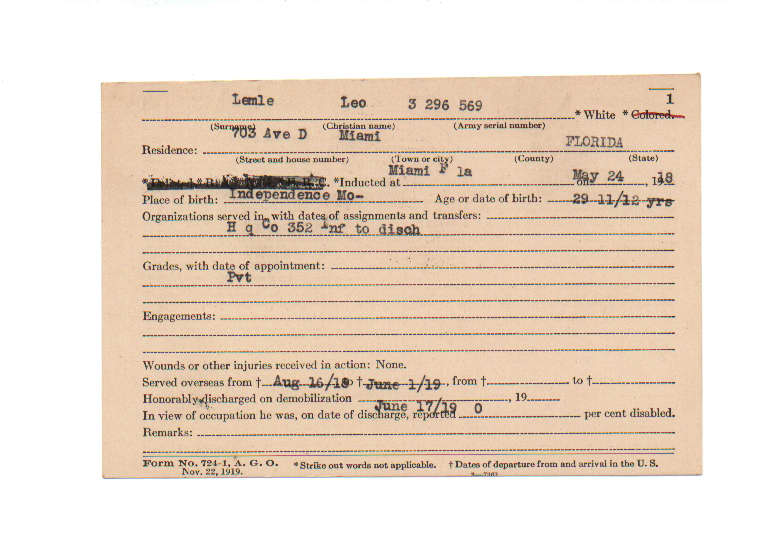 1
Lemle Leo 3 296 569 * White * Colored.
(Surname) (Christian name) (Army serial number)
703 Ave D Miami FLORIDA
Residence:
(Street and house number) (Town or city) (County) (State)
*Inducted at Miami F la on May 24, 1918
Place of birth: Independence Mo- Age or date of birth: 29 11/12 yrs
Organizations served in, with dates of assignments and transfers:
H q Co 352 Inf to disch
Grades, with date of appointment:
Pvt
Engagements:
Wounds or other injuries received in action: None.
Served overseas from † Aug 16/18 to † June 1/19, from † to †
Honorably discharged on demobilization June 17/19, 19
In view of occupation he was, on date of discharge, reported 0 per cent disabled.
Remarks:
Form No. 724-1, A. G. O. *Strike out words not applicable. † Dates of departure from and arrival in the U. S.
Nov. 22, 1919.